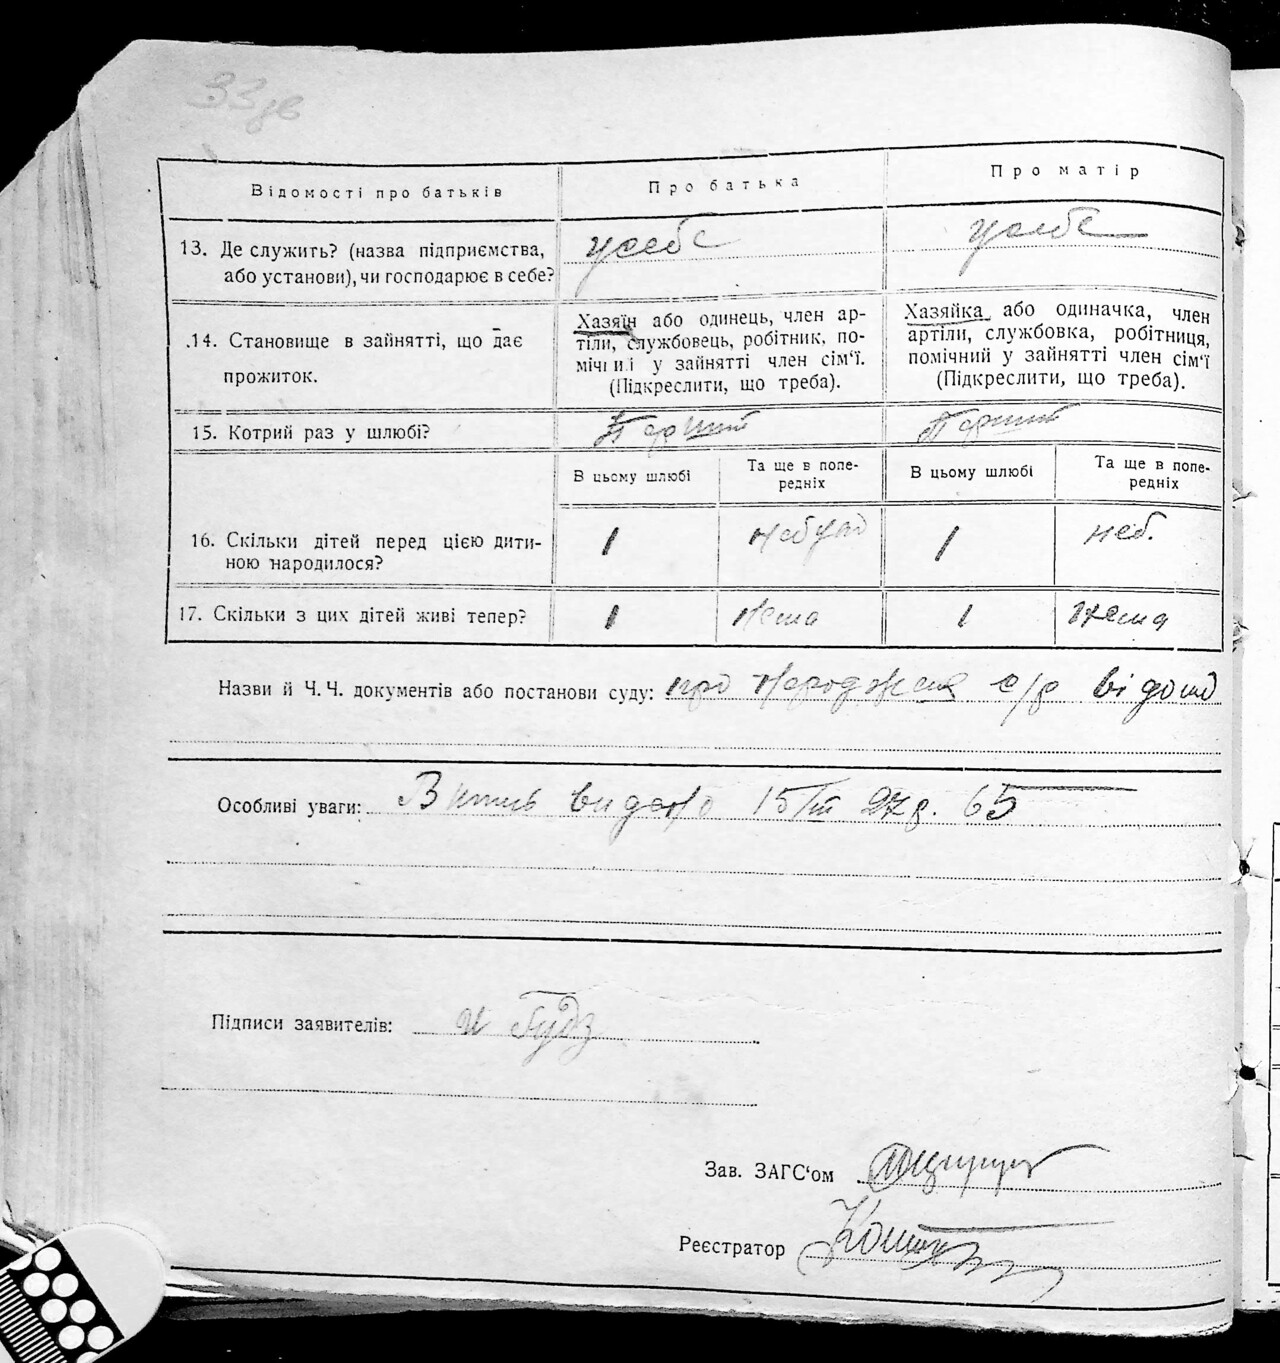 33 зв
Відомості про батьків
Про батька
Про матір
13. Де служить? (назва підприємства, або установи), чи господарює в себе?
у себе
у себе
14. Становище в зайнятті, що дає прожиток.
Хазяїн або одинець, член ар-
тіли, службовець, робітник, по-
мічний у зайнятті член сім'ї.
(Підкреслити, що треба).
Хазяйка або одиначка, член
артіли, службовка, робітниця,
помічний у зайнятті член сім'ї
(Підкреслити, що треба).
15. Котрий раз у шлюбі?
Перший
Перший
В цьому шлюбі
Та ще в попе-
редніх
В цьому шлюбі
Та ще в попе-
редніх
16. Скільки дітей перед цією дити-
ною народилося?
1
небуло
1
неб.
17. Скільки з цих дітей живі тепер?
1
нема
1
нема
Назви й Ч. Ч. документів або постанови суду: про народження с/р відомо
Особливі уваги: Витяг видано 15/III 27 р. 65
Підписи заявителів: Гудз
Зав. ЗАГС'ом
Реєстратор